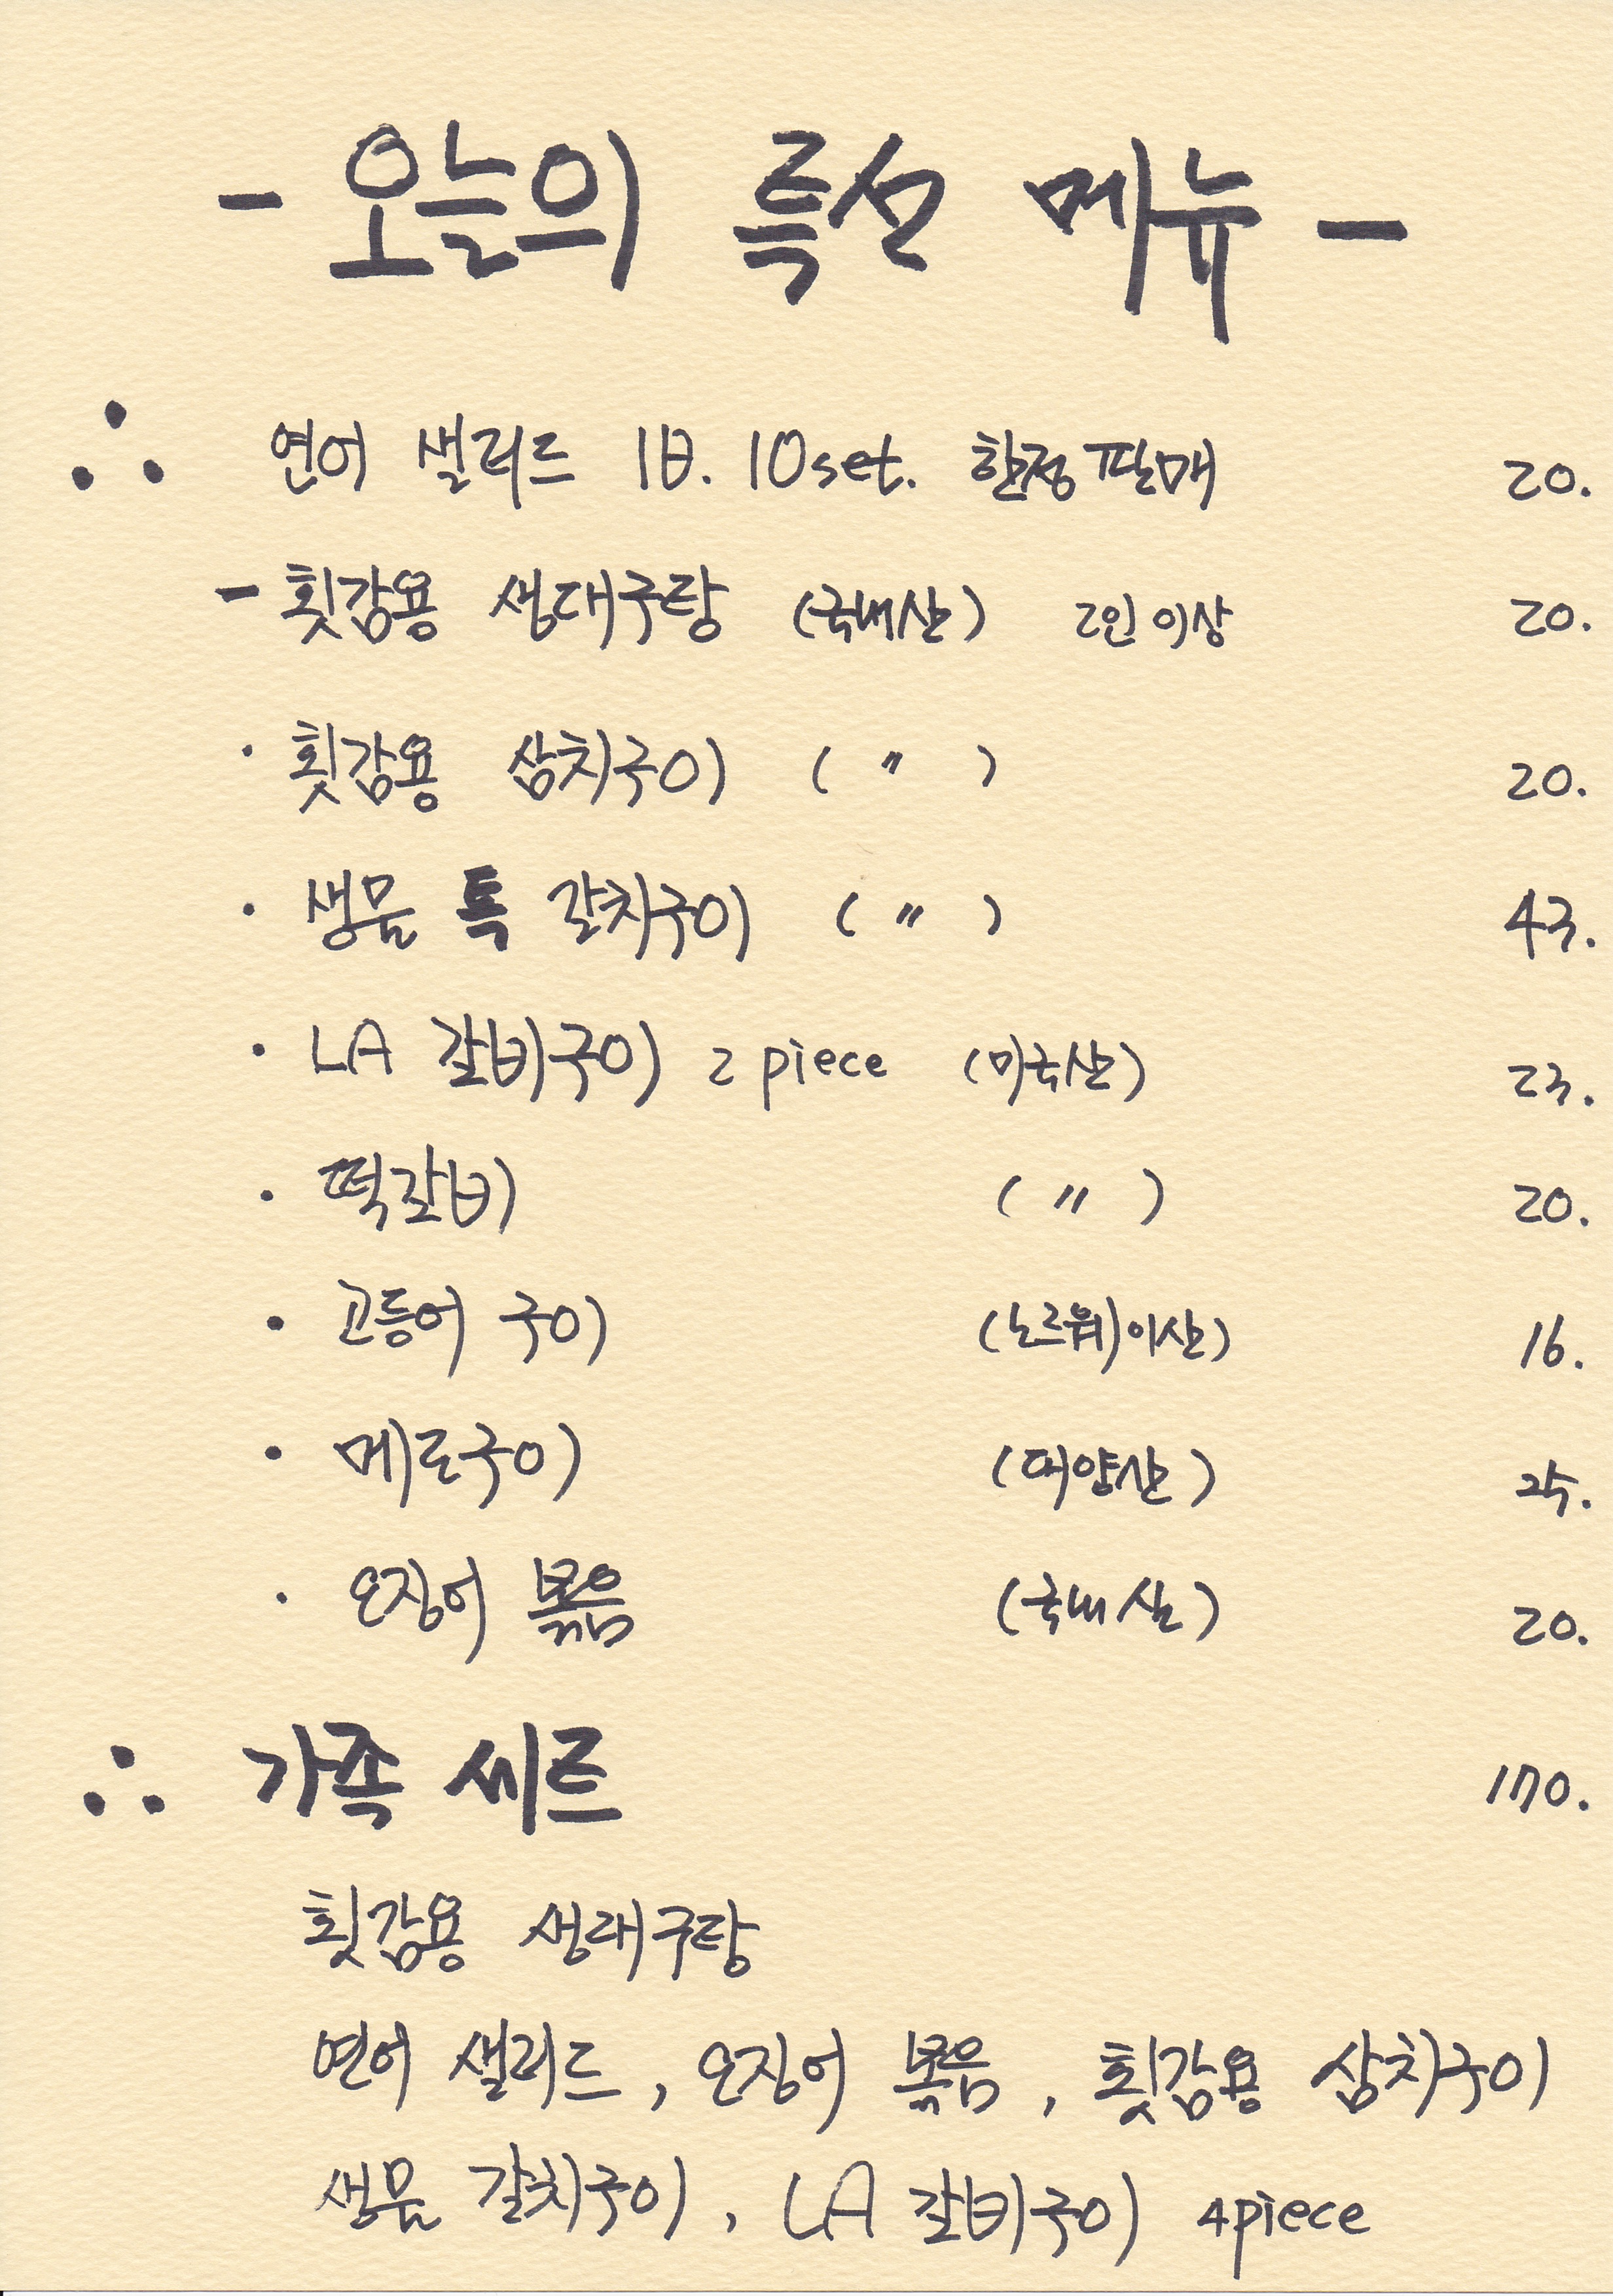 - 오늘의 특선 메뉴 -
∴ 연어 샐러드 1日. 10set. 한정판매 20.
- 횟감용 생대구탕 (국내산) 2인 이상 20.
· 횟감용 삼치구이 ( 〃 ) 20.
· 생물 특 갈치구이 ( 〃 ) 43.
· LA 갈비구이 2 piece (미국산) 23.
· 떡갈비 ( 〃 ) 20.
· 고등어 구이 (노르웨이산) 16.
· 메로구이 (태양산) 25.
· 오징어 볶음 (국내산) 20.
∴ 가족 세트 170.
횟감용 생대구탕
연어 샐러드, 오징어 볶음, 횟감용 삼치구이
생물 갈치구이, LA 갈비구이 4piece